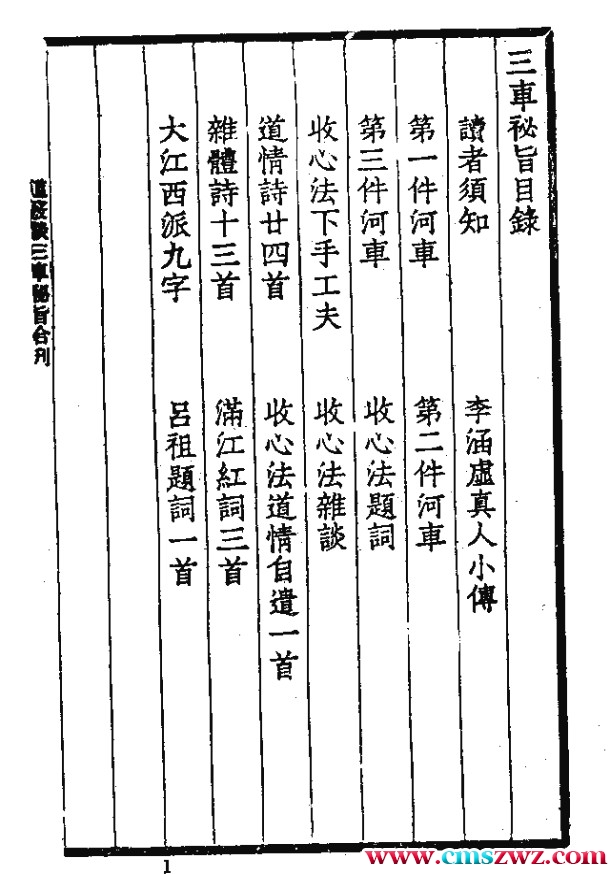 三車祕旨目錄
讀者須知　李涵虛真人小傳
第一件河車　第二件河車
第三件河車　收心法題詞
收心法下手工夫　收心法雜談
道情詩廿四首　收心法道情自遣一首
雜體詩十三首　滿江紅詞三首
大江西派九字　呂祖題詞一首
道竅談三車祕旨合刊
1
www.cmszwz.com